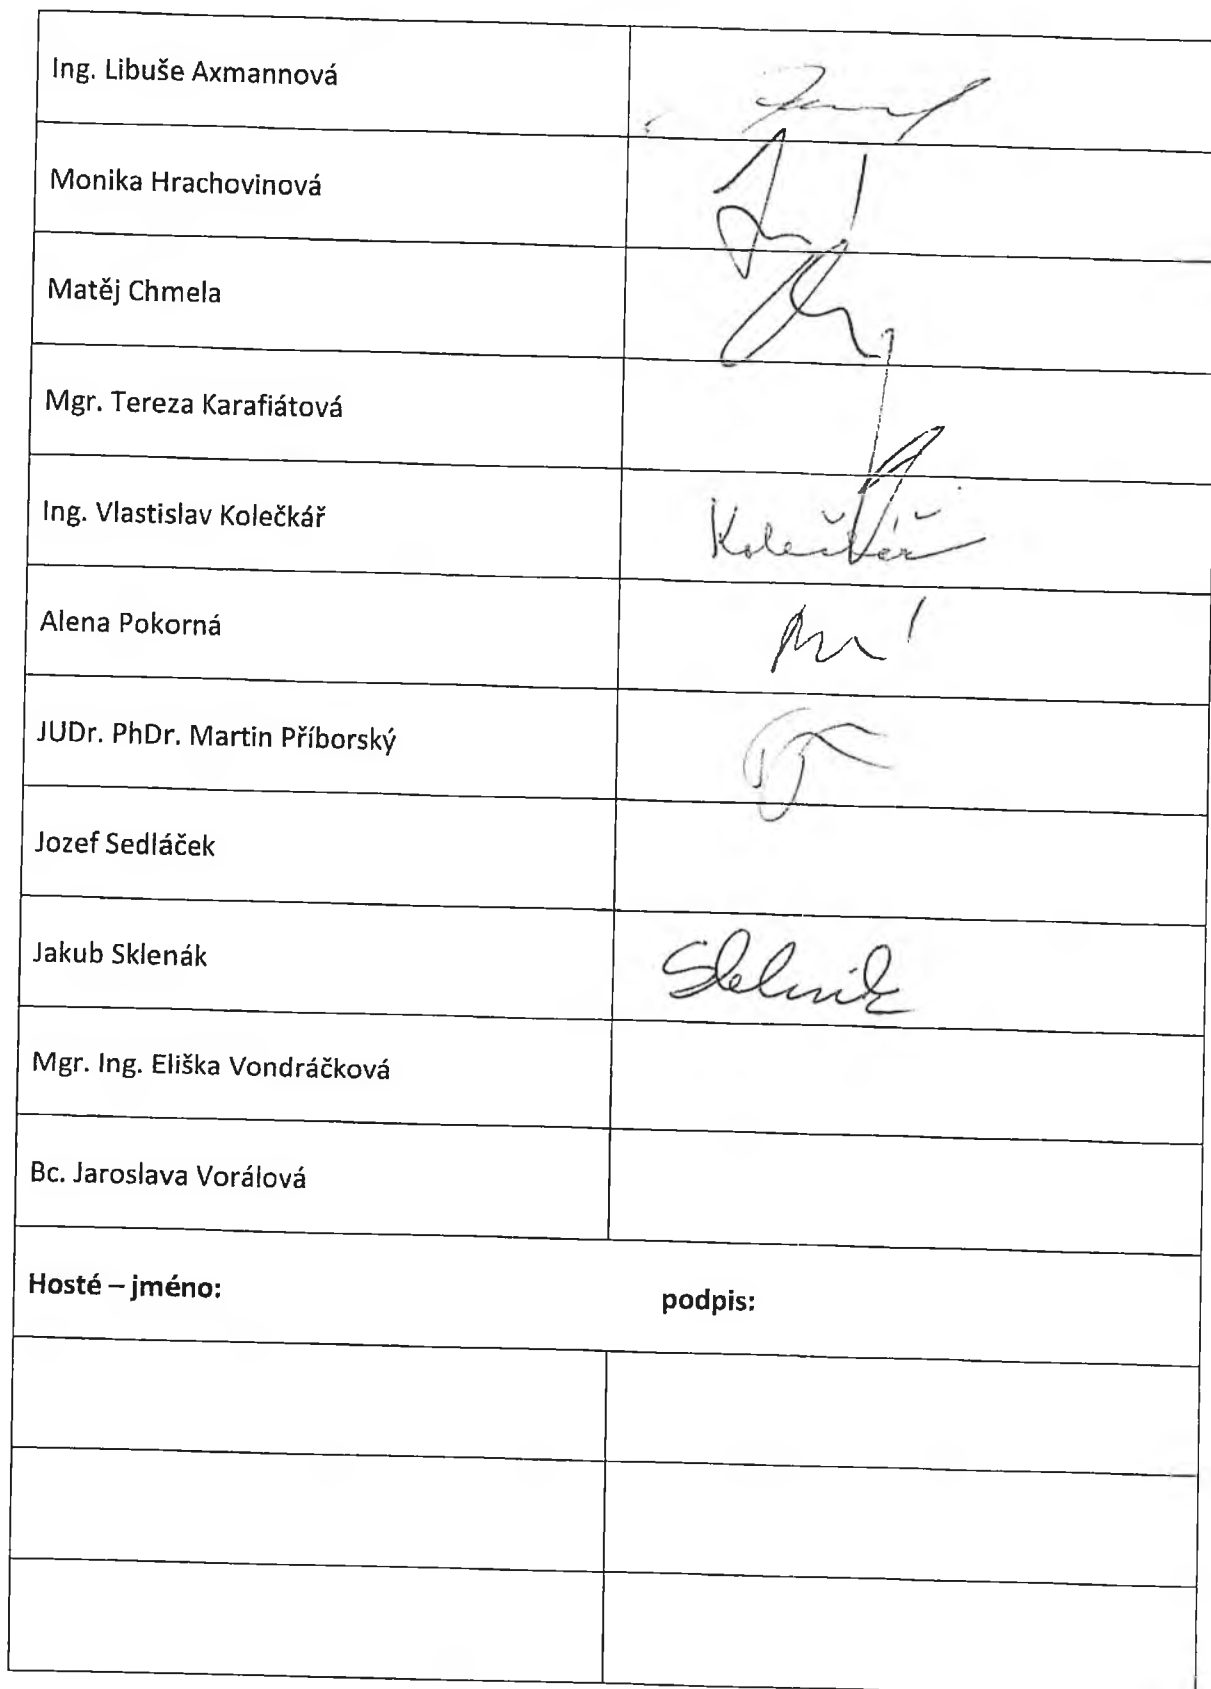 Ing. Libuše Axmannová
Monika Hrachovinová
Matěj Chmela
Mgr. Tereza Karafiátová
Ing. Vlastislav Kolečkář
Kolečkář
Alena Pokorná
JUDr. PhDr. Martin Příborský
Jozef Sedláček
Jakub Sklenák
Mgr. Ing. Eliška Vondráčková
Bc. Jaroslava Vorálová
Hosté – jméno: podpis: